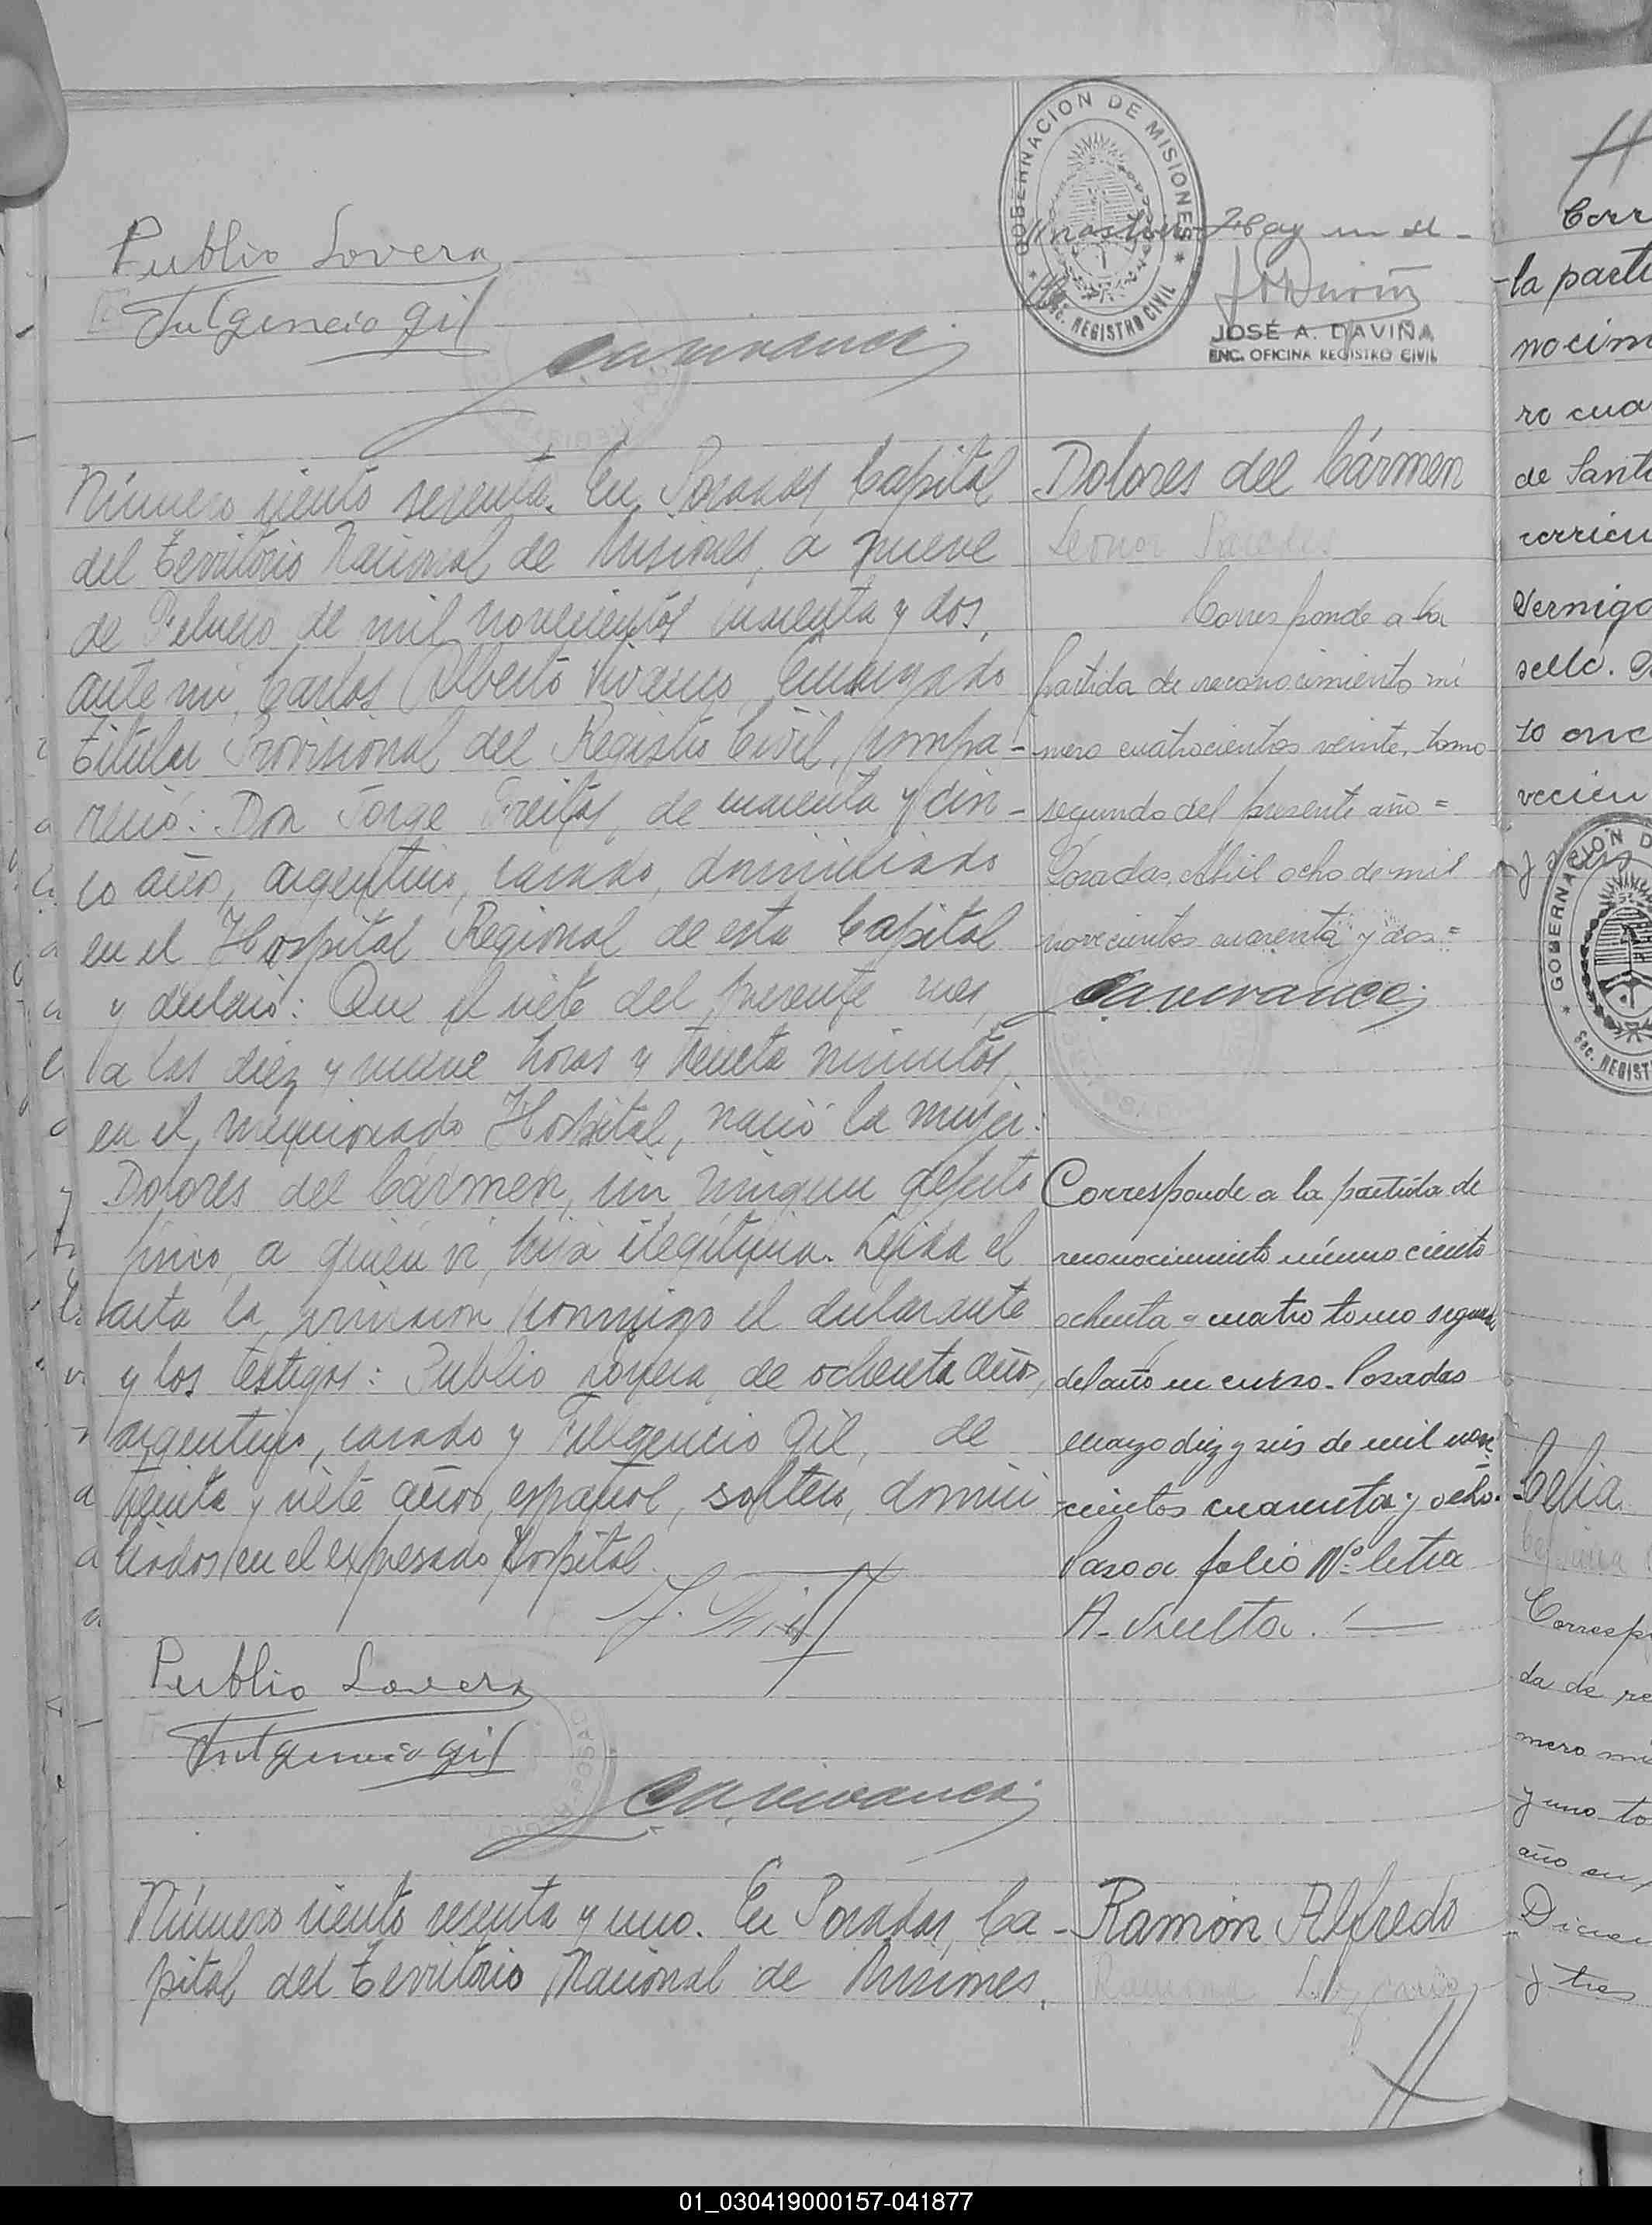 GOBERNACION DE MISIONES
Sec. REGISTRO CIVIL
JOSÉ A. DAVIÑA
ENC. OFICINA REGISTRO CIVIL
Publio Lovera
Fulgencio Gil
CAVivanco
Número ciento sesenta. En Posadas, Capital
del Territorio Nacional de Misiones, a nueve
de Febrero de mil novecientos cuarenta y dos,
ante mi, Carlos Alberto Vivanco, Encargado
Titular Provisional del Registro Civil, compa-
reció: Don Jorge Freitas, de cuarenta y cin-
co años, argentino, casado, domiciliado
en el Hospital Regional de esta Capital
y declaró: Que el siete del presente mes,
a las diez y nueve horas y treinta minutos,
en el mencionado Hospital, nació la mujer:
Dolores del Cármen, sin ningun defecto
físico, a quien vi, hija ilegítima. Leida el
acta la firmaron conmigo el declarante
y los testigos: Publio Lovera, de ochenta años,
argentino, casado y Fulgencio Gil, de
treinta y siete años, español, soltero, domici
liados en el expresado Hospital.
Publio Lovera
Fulgencio Gil
CAVivanco
Número ciento sesenta y uno. En Posadas, Ca-
pital del Territorio Nacional de Misiones,
Dolores del Cármen
Leonor Paredes
Corresponde a la
partida de reconocimiento nú
mero cuatrocientos veinte, tomo
segundo del presente año=
Posadas, Abril ocho de mil
novecientos cuarenta y dos=
CAVivanco
Corresponde a la partida de
reconocimiento número ciento
ochenta y cuatro tomo segundo
del año en curso. Posadas
mayo diez y seis de mil nove
cientos cuarenta y ocho.
Pasa a folio Nº letra
A. Vuelta.
Ramón Alfredo
Ramona
Corr
la parti
nocim
ro cua
de Sant
corrien
sello.
to
vecien
GOBERNACION D
Sec. REGIST
Celia
Corresp
da de re
mero
y uno to
año en
Diciem
y tres
01_030419000157-041877